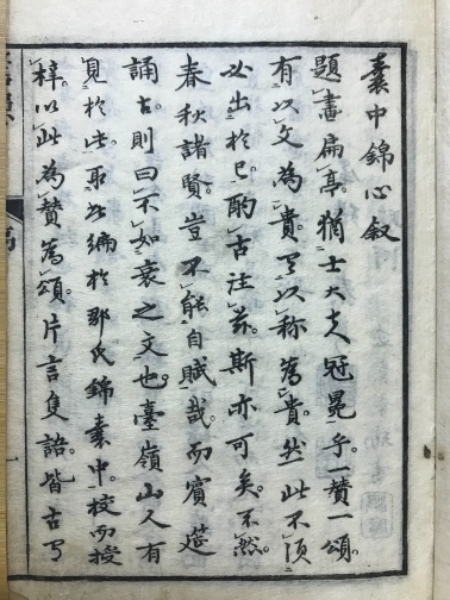 囊中錦心叙
題畫扁亭。猶士大夫冠冕乎。一贊一頌。
有以文為貴。有以称為貴。然此不須
必出於己。酌古注茲。斯亦可矣。不然。
春秋諸賢。豈不能自賦哉。而賓筵
誦古。則曰不如衰之文也。臺嶺山人有
見於此。取此編於那氏錦囊中。授而授
梓。以此為贊為頌。片言隻語。皆古
一